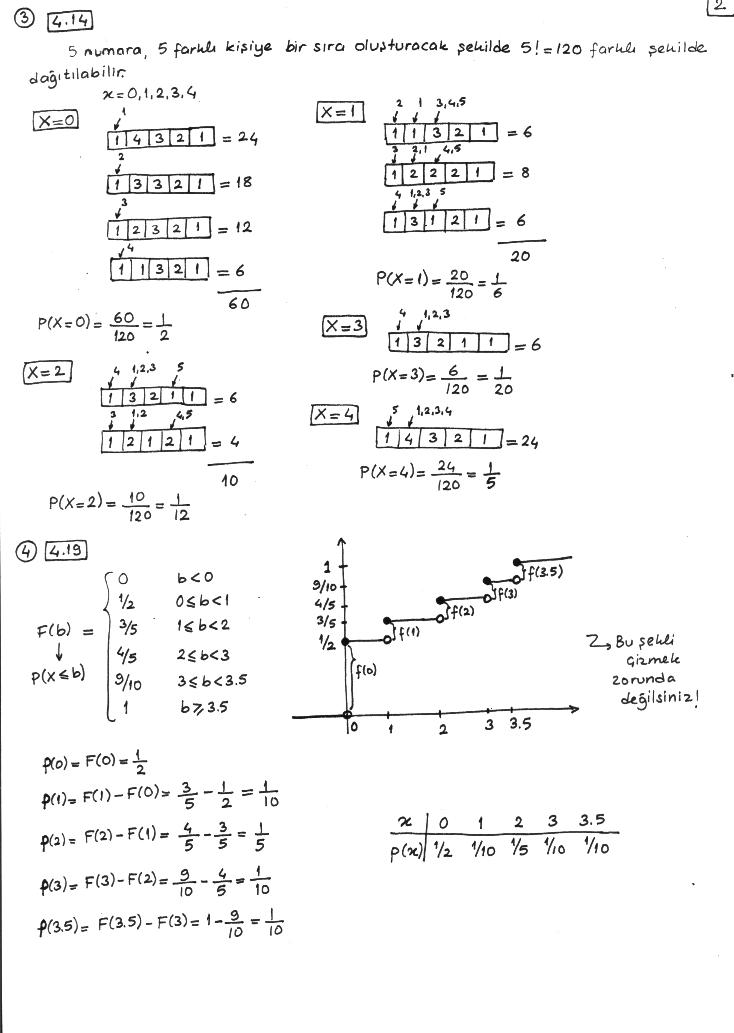 2
③ 4.14
5 numara, 5 farklı kişiye bir sıra oluşturacak şekilde 5! = 120 farklı şekilde
dağıtılabilir.
x = 0,1,2,3,4
X=0
1
1 4 3 2 1 = 24
2
1 3 3 2 1 = 18
3
1 2 3 2 1 = 12
4
1 1 3 2 1 = 6
60
P(X=0) = 60/120 = 1/2
X=1
2 1 3,4,5
1 1 3 2 1 = 6
3 2,1 4,5
1 2 2 2 1 = 8
4 1,2,3 5
1 3 1 2 1 = 6
20
P(X=1) = 20/120 = 1/6
X=2
4 1,2,3 5
1 3 2 1 1 = 6
3 1,2 4,5
1 2 1 2 1 = 4
10
P(X=2) = 10/120 = 1/12
X=3
4 1,2,3
1 3 2 1 1 = 6
P(X=3) = 6/120 = 1/20
X=4
5 1,2,3,4
1 4 3 2 1 = 24
P(X=4) = 24/120 = 1/5
④ 4.19
F(b) =
↓
P(X≤b)
0 b<0
1/2 0≤b<1
3/5 1≤b<2
4/5 2≤b<3
9/10 3≤b<3.5
1 b≥3.5
1
9/10
4/5
3/5
1/2
f(0)
f(1)
f(2)
f(3)
f(3.5)
0 1 2 3 3.5
Bu şekli
çizmek
zorunda
değilsiniz!
p(0) = F(0) = 1/2
p(1) = F(1) - F(0) = 3/5 - 1/2 = 1/10
p(2) = F(2) - F(1) = 4/5 - 3/5 = 1/5
p(3) = F(3) - F(2) = 9/10 - 4/5 = 1/10
p(3.5) = F(3.5) - F(3) = 1 - 9/10 = 1/10
x 0 1 2 3 3.5
p(x) 1/2 1/10 1/5 1/10 1/10